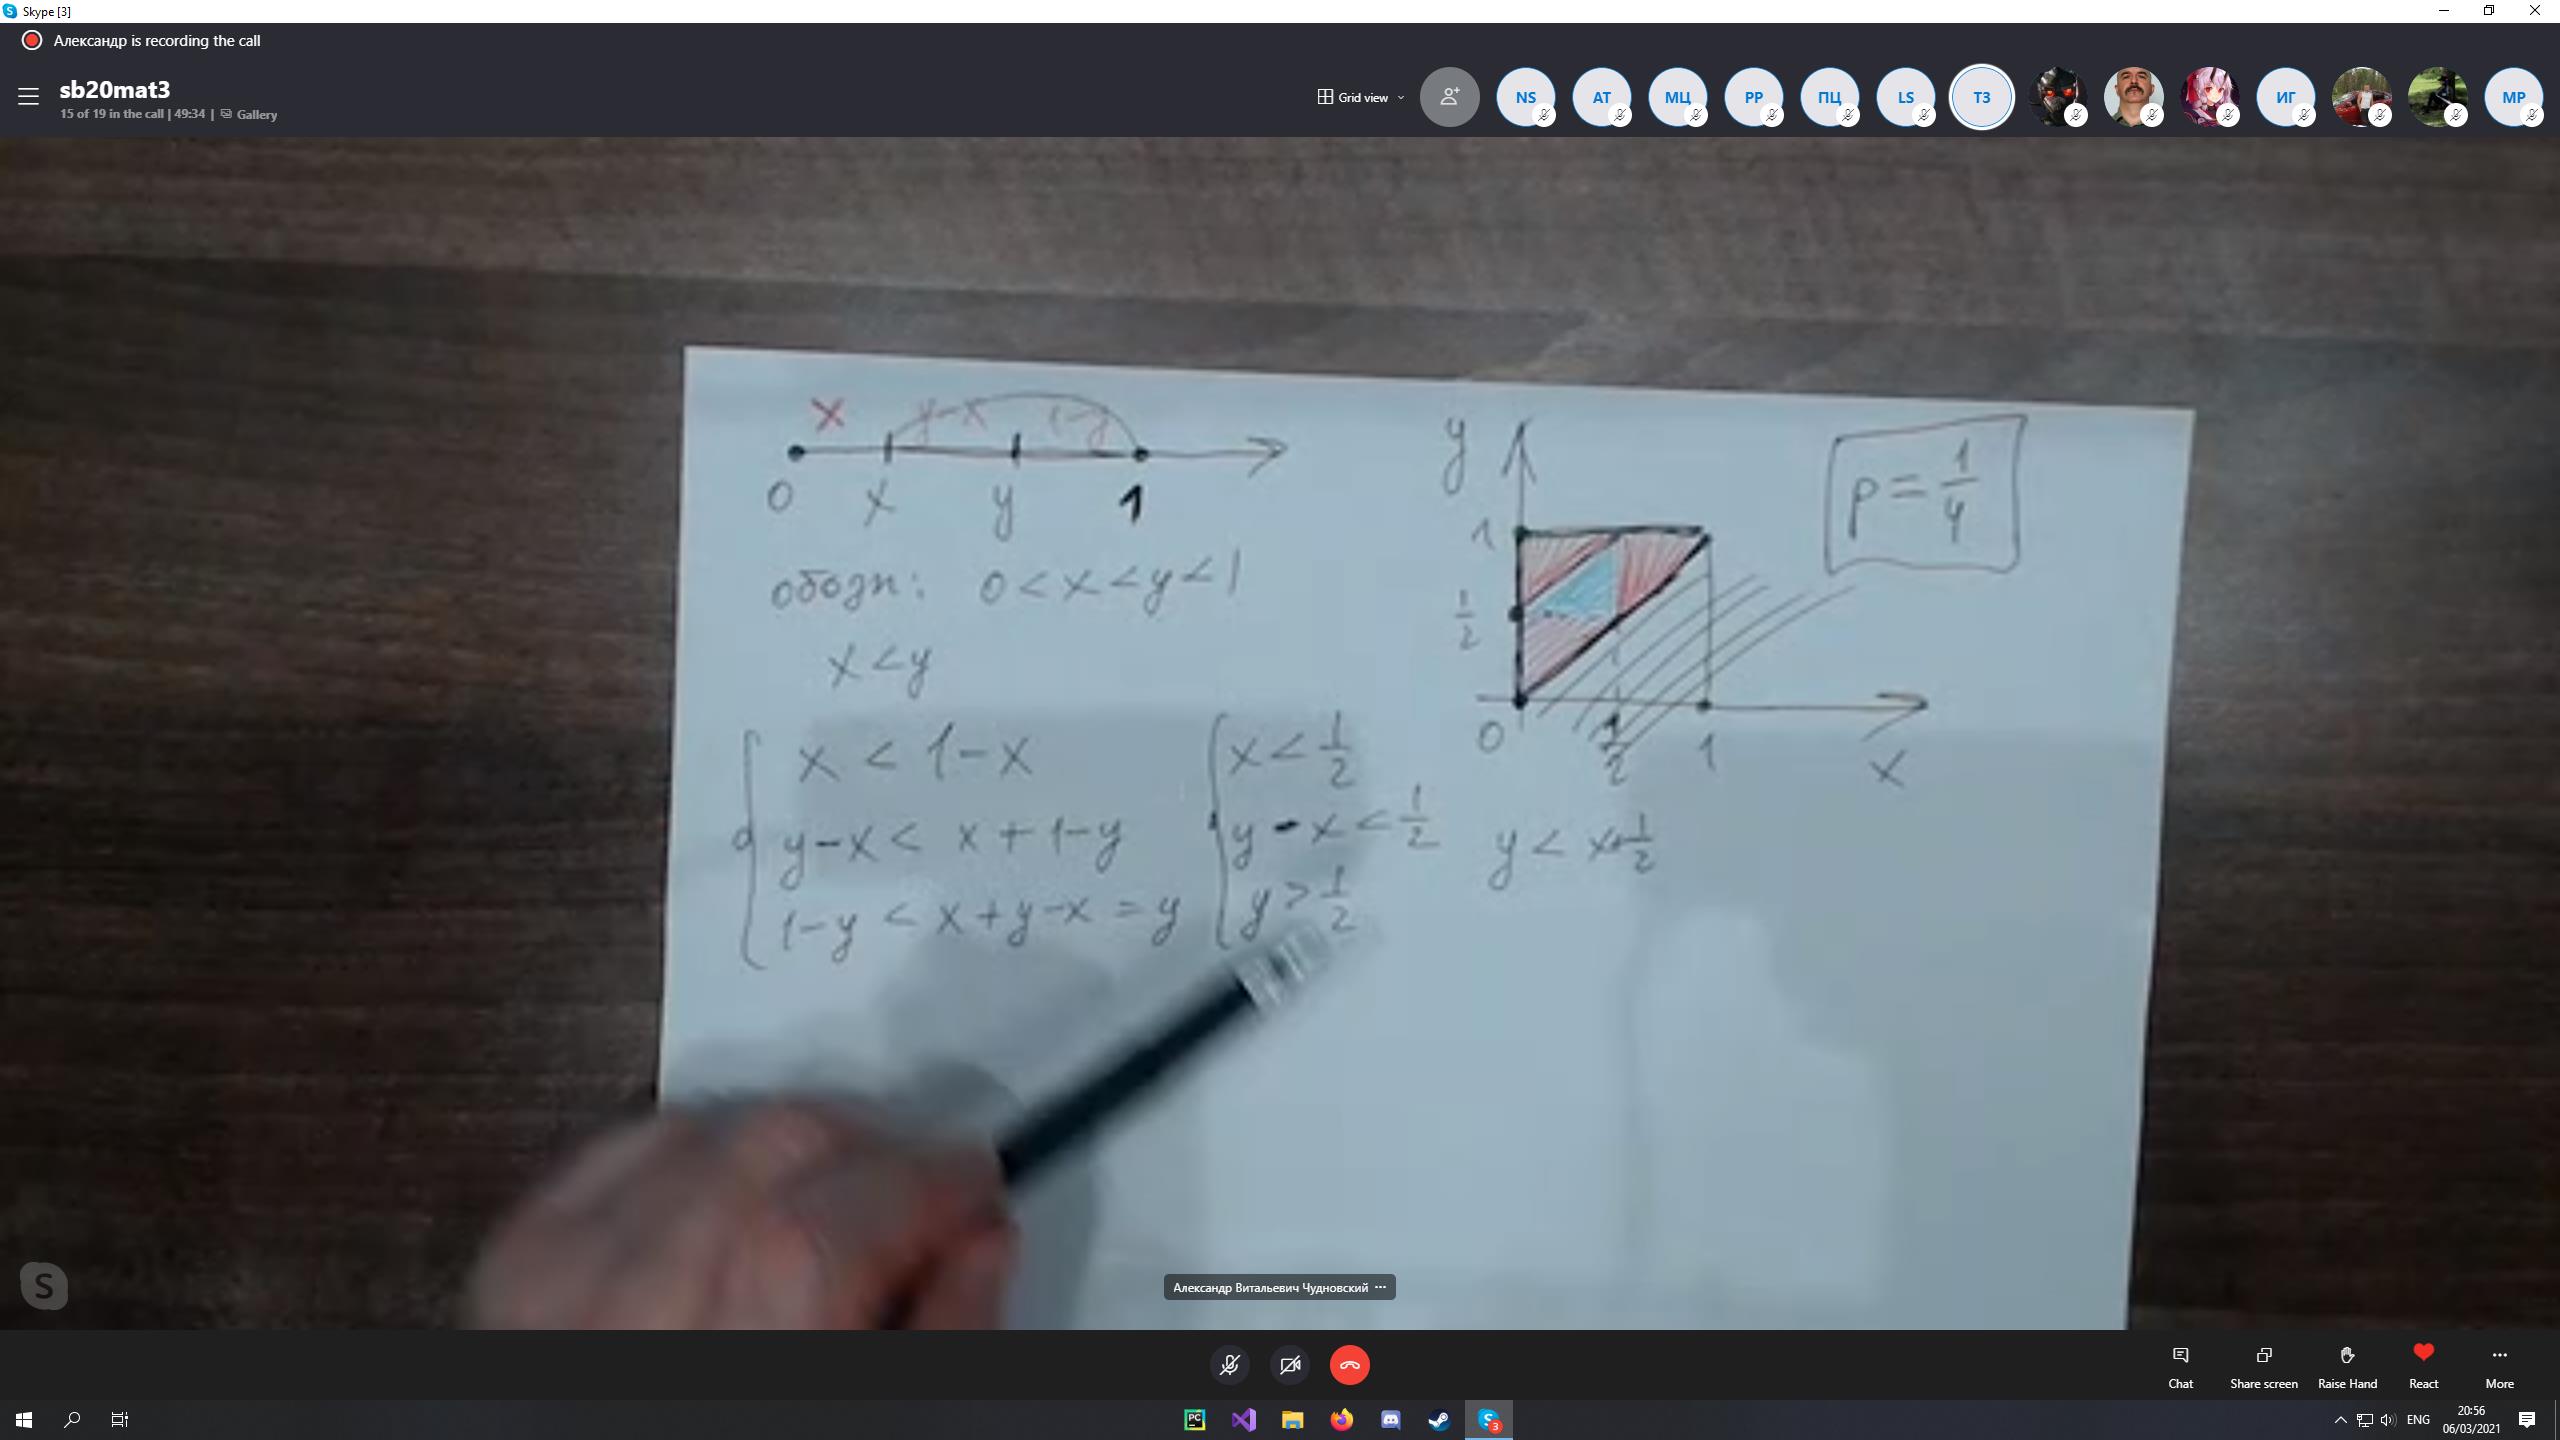 Skype [3]
Александр is recording the call
sb20mat3
15 of 19 in the call | 49:34 | Gallery
Grid view
NS
AT
МЦ
PP
ПЦ
LS
ТЗ
ИГ
MP
x y-x 1-y
0 x y 1
обозн: 0 < x < y < 1
x < y
x < 1-x
y-x < x+1-y
1-y < x+y-x = y
x < 1/2
y-x < 1/2
y > 1/2
y < x+1/2
y
1
1/2
0 1/2 1 x
p = 1/4
Александр Витальевич Чудновский
Chat
Share screen
Raise Hand
React
More
S
PC
S 3
ENG
20:56
06/03/2021